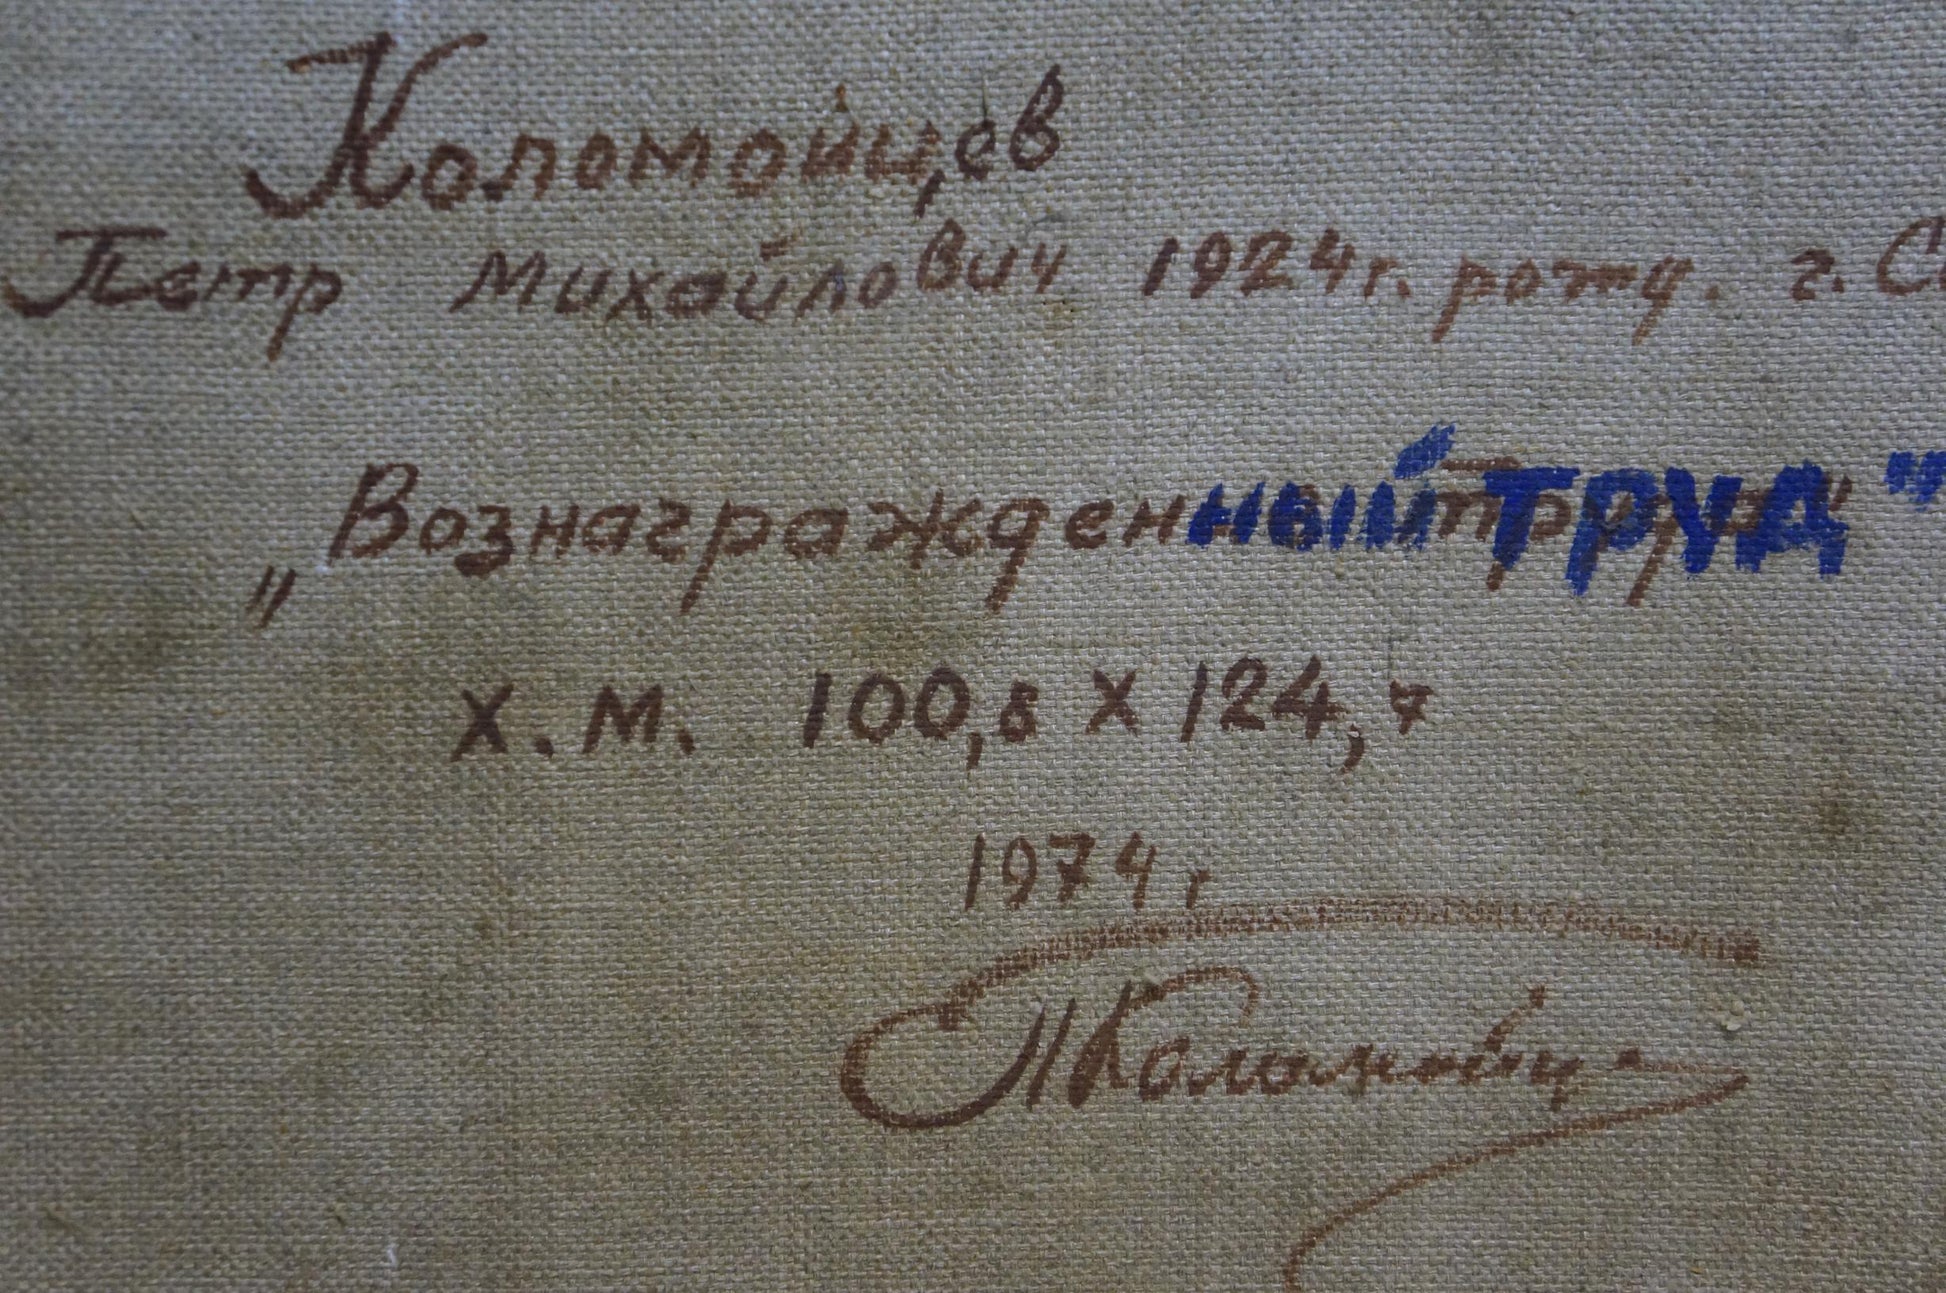 Коломойцев
Петр Михайлович 1924 г. рожд. г. С
„Вознагражденный ТРУД"
х. м. 100,5 х 124,7
1974 г
П Коломойц